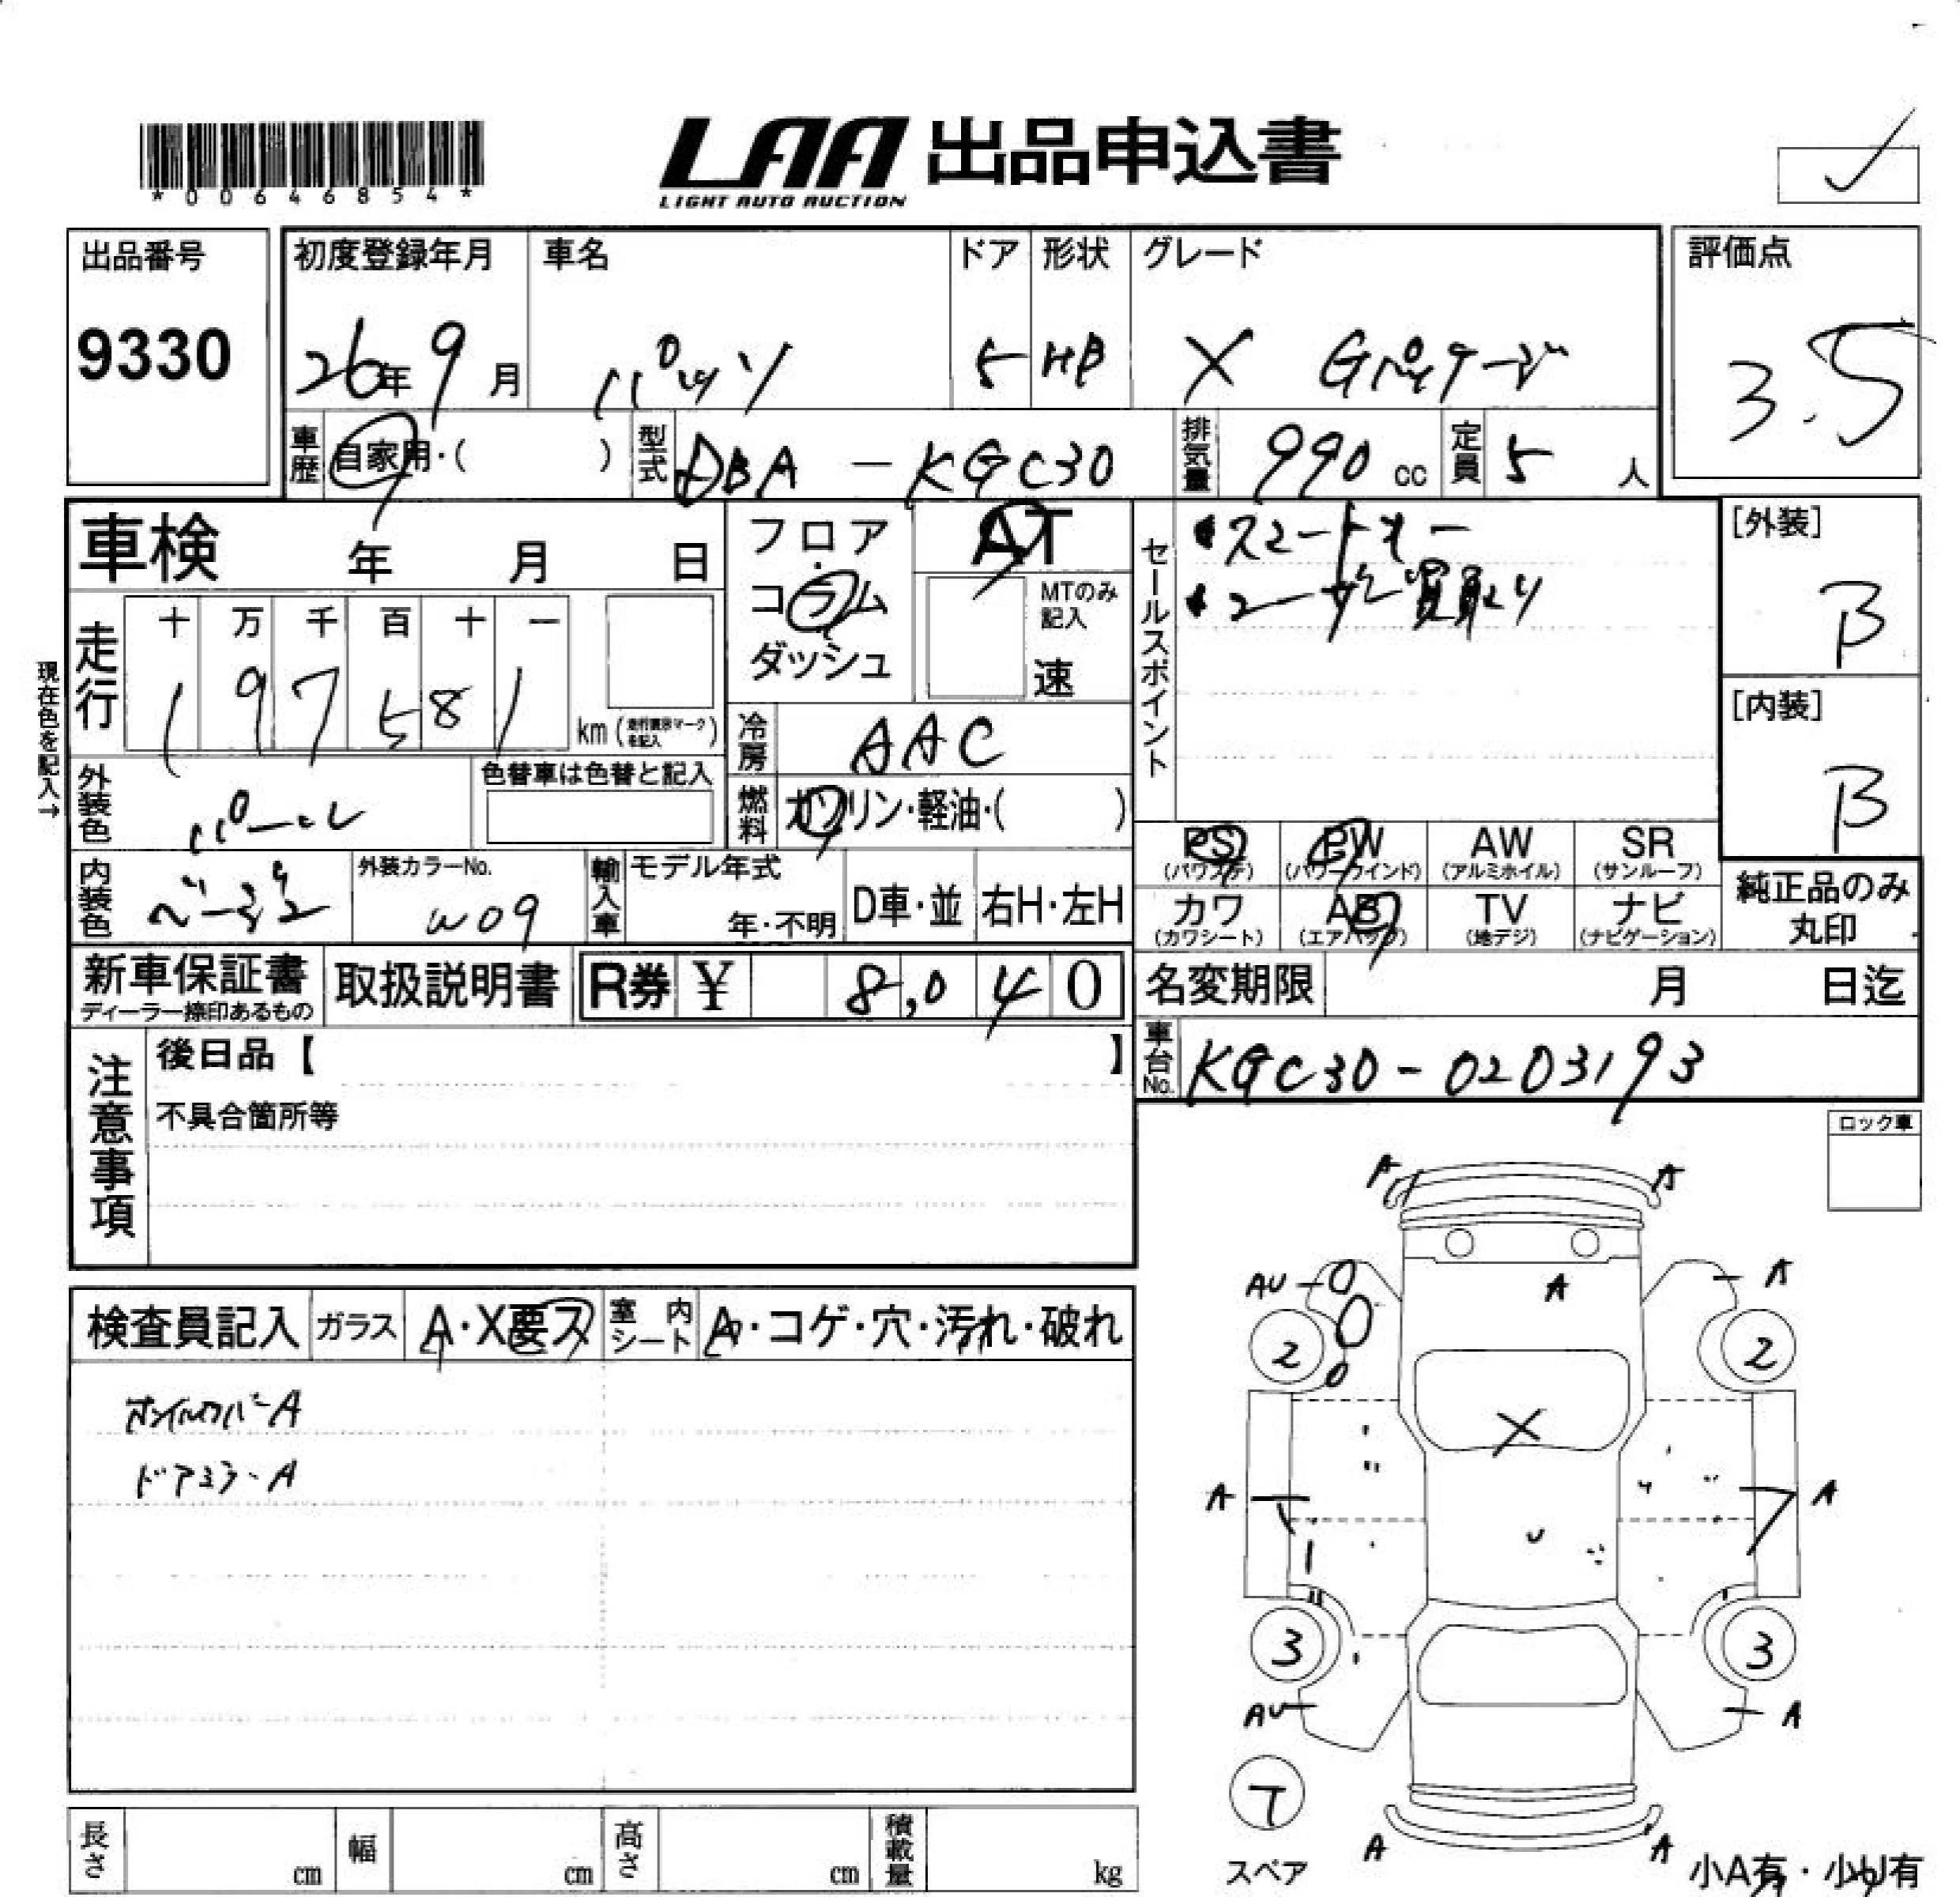 *00646854*
LAA 出品申込書
LIGHT AUTO AUCTION
出品番号
9330
初度登録年月
26年 9月
車名
パッソ
ドア
5
形状
HB
グレード
X Gパッケージ
評価点
3.5
車歴
自家用・( )
型式
DBA-KGC30
排気量
990 cc
定員
5 人
車検 年 月 日
フロア
コラム
ダッシュ
AT
MTのみ記入
速
セールスポイント
・スマートキー
・ユーザー買取り
[外装]
B
[内装]
B
現在色を記入→
走行
十 万 千 百 十 一
1 9 7 5 8 1
km (走行表示マークを記入)
冷房
AAC
外装色
パール
色替車は色替と記入
燃料
ガソリン・軽油・( )
PS
(パワステ)
PW
(パワーウインド)
AW
(アルミホイル)
SR
(サンルーフ)
内装色
外装カラーNo.
W09
輸入車
モデル年式
年・不明
D車・並
右H・左H
カワ
(カワシート)
AB
(エアバッグ)
TV
(地デジ)
ナビ
(ナビゲーション)
純正品のみ
丸印
新車保証書
ディーラー捺印あるもの
取扱説明書
R券 ¥ 8,040
名変期限 月 日迄
車台No.
KGC30-0203193
注意事項
後日品【 】
不具合箇所等
ロック車
検査員記入
ガラス
A・X要ス
室内シート
A・コゲ・穴・汚れ・破れ
ホイルカバーA
ドアミラーA
A A
AU A A
2 2
X
A A
3 3
AU A
T
スペア
A A
小A有・小U有
長さ cm
幅 cm
高さ cm
積載量 kg